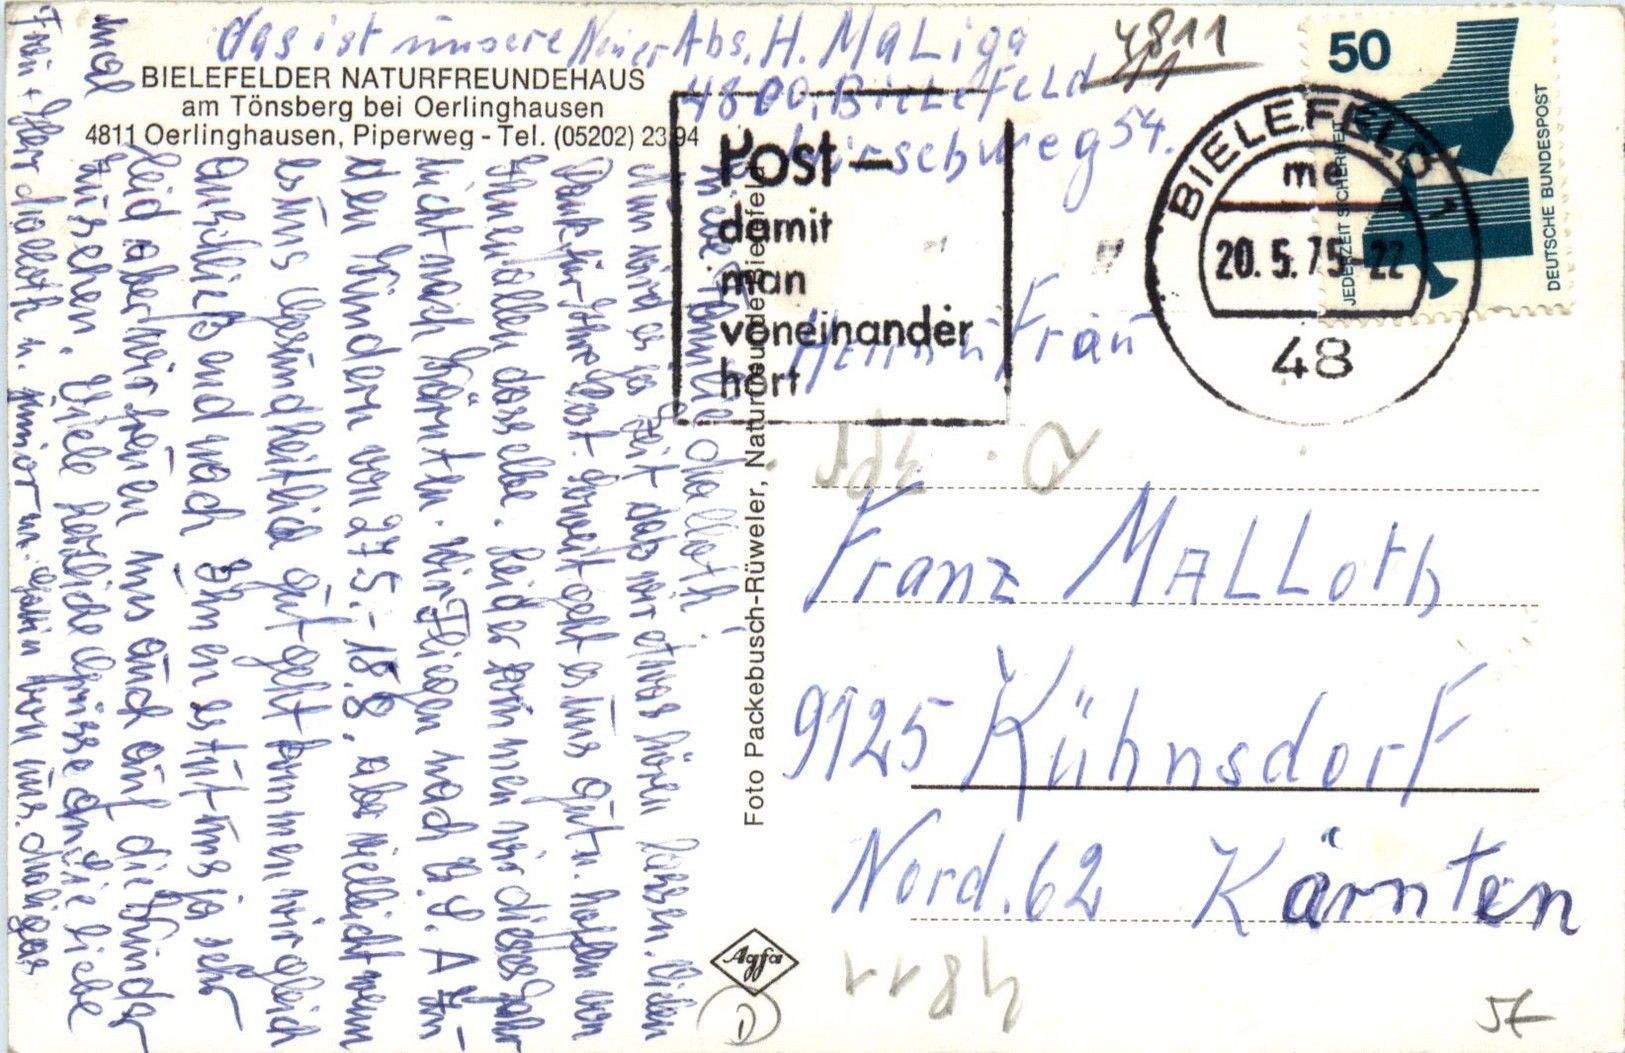 das ist unsere Neuer Abs. H. MaLiga
4811
4800, BieLeFeLd 11
54.
BIELEFELDER NATURFREUNDEHAUS
am Tönsberg bei Oerlinghausen
4811 Oerlinghausen, Piperweg - Tel. (05202) 23 94
Post –
damit
man
voneinander
hört
BIELEFELD 1
me
20. 5. 75 - 22
48
50
JEDERZEIT SICHERHEIT
DEUTSCHE BUNDESPOST
Foto Packebusch-Rüweler, Naturfreunde Bielefeld
Familie Malloth!
Nun wird es ja Zeit daß wir etwas hören lassen. Vielen
Dank für Ihre Post. Soweit geht es uns gut u. hoffen von
Ihnen allen dasselbe. Leider kommen wir dieses Jahr
nicht nach Kärnten. Wir Fliegen nach U.S.A zu
den Kindern von 27.5.-18.8. aber vielleicht wenn
es uns Gesundheitlich gut geht kommen wir gleich
anschließend nach Ihnen es tut uns ja sehr
leid aber wir freuen uns auch auf die Kinder
zwischen. Viele herzliche Grüsse an Sie liebe
Frau + Herr Malloth u. Junior u. Gattin von uns. Maligas
mal
Herrn u Frau
Franz MALLoth
9125 Kühnsdorf
Nord. 62 Kärnten
Agfa
D
4811
5€